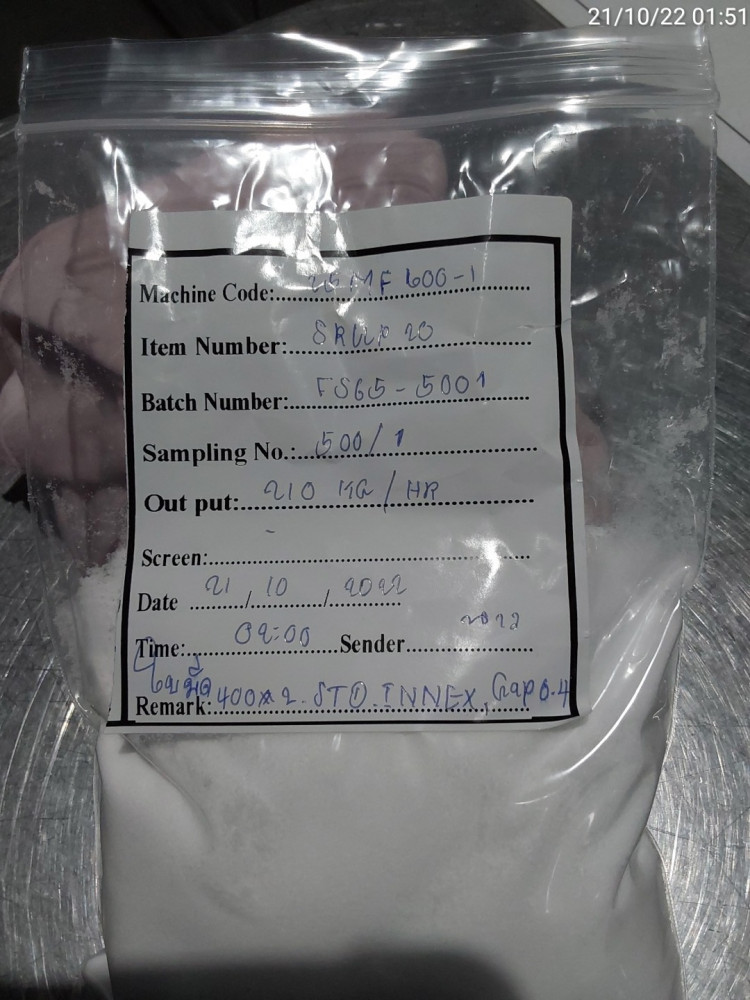 21/10/22 01:51
Machine Code: MF 600-1
Item Number: 20
Batch Number: FS65-5001
Sampling No.: 500/1
Out put: 210 KG/HR
Screen: -
Date 21/10/2022
Time: 02:00 Sender
ใบมีด
Remark: 400x2.STD.INNEX, Gap 0.4